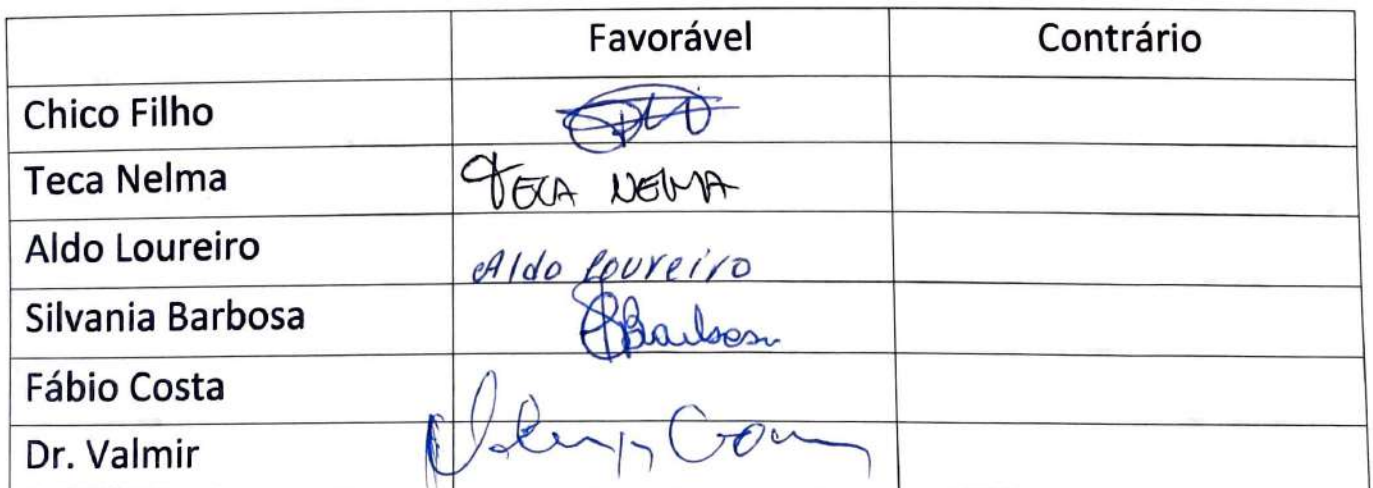 Favorável Contrário
Chico Filho
Teca Nelma TECA NELMA
Aldo Loureiro Aldo Loureiro
Silvania Barbosa SBarbosa
Fábio Costa
Dr. Valmir